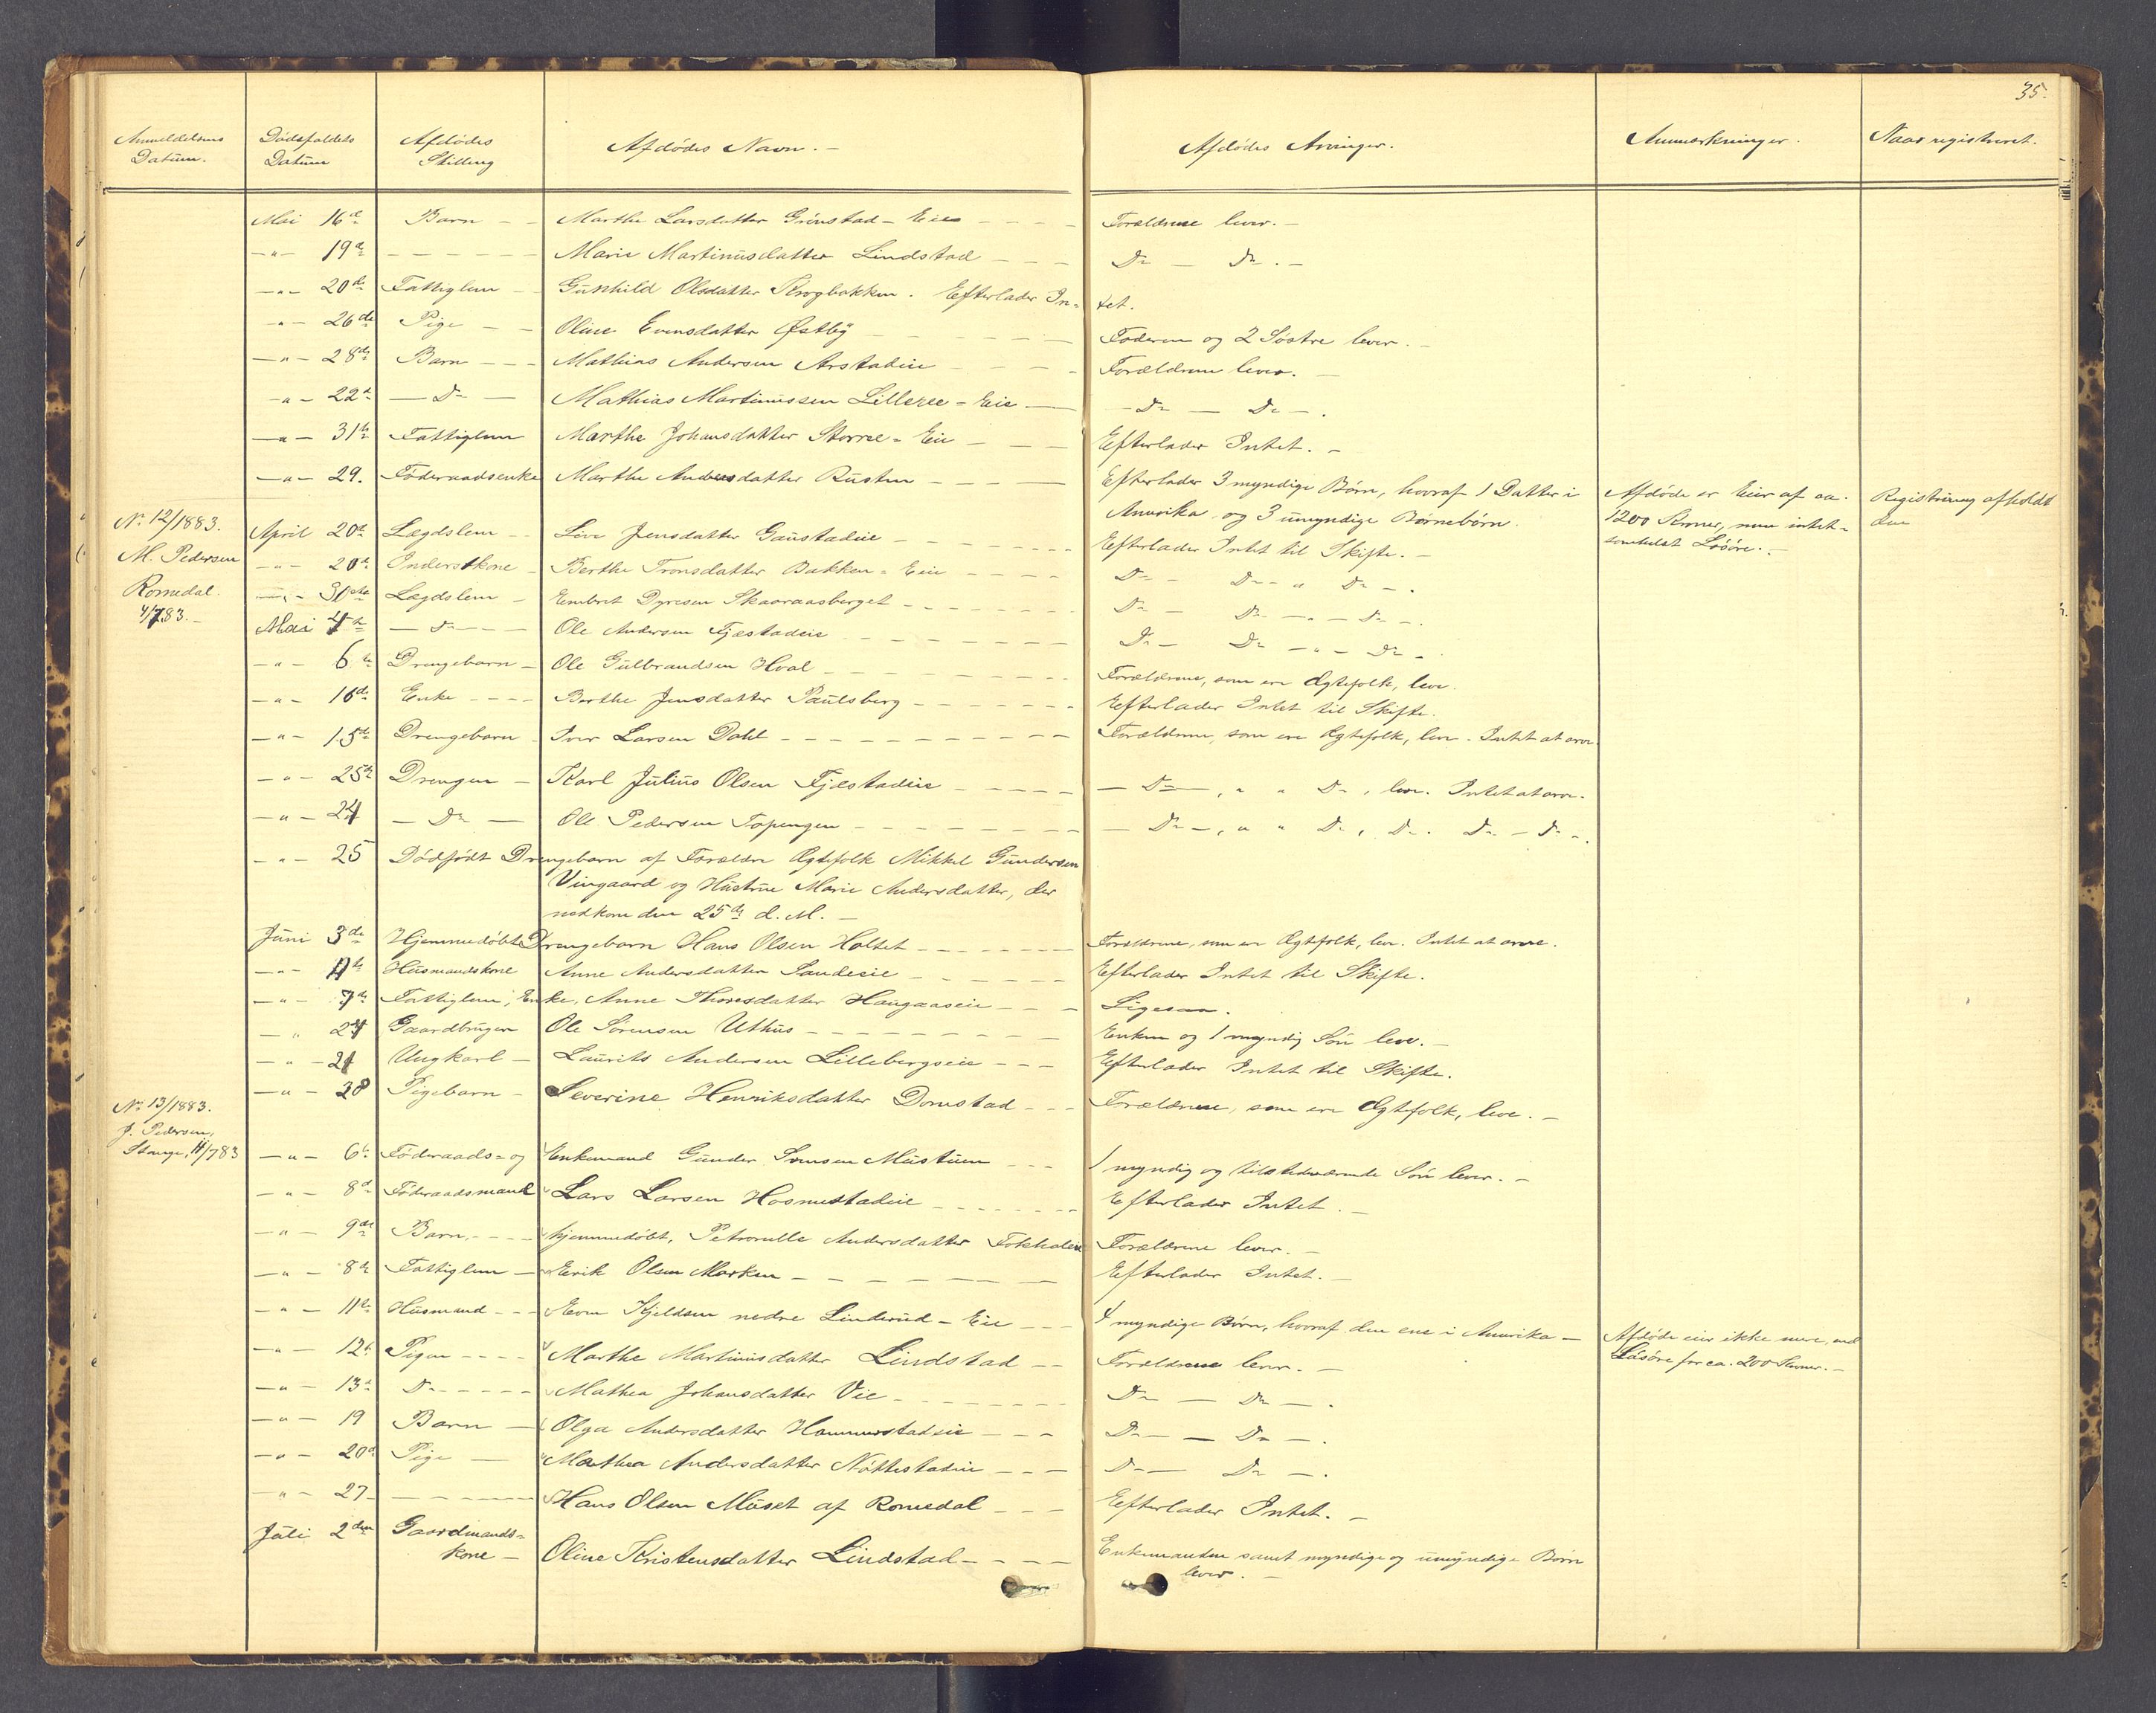 35.
Anmeldelsens Datum. Dödsfaldets Datum Afdödes Stilling Afdödes Navn. - Afdödes Arvinger. Anmærkninger. Naar registreret.
Mai 16de Barn - - Marthe Larsdatter Grönstad - Eie - - - - Forældrene lever. -
- " - 19de - - - - - Marie Martinusdatter Lindstad - - - Do - Do. -
- " - 20de Fattiglem - Gunhild Olsdatter Krogbakken. Efterlader In= tet.
- " - 26de Pige - - Oline Evensdatter Østby - - - - - Faderen og 2 Søstre lever. -
- " - 28de Barn - - - Mathias Andersen Arstadeie - - - - Forældrene lever. -
- " - 22de - Do - Mathias Martinussen Lilleree = Eie - - Do - Do - .
- " - 31te Fattiglem Marthe Johansdatter Storree = Eie - - - Efterlader Intet. -
- " - 29. Föderaadsenke Marthe Andersdatter Rusten - - - - Efterlader 3 myndige Børn, hvoraf 1 Datter i Afdöde er Eier af ca. Registrering afholdt
No 12/1883. Amerika og 3 umyndige Børnebörn. 1200 Kroner, men intet= den
April 20de Lægdslem - - Live Jensdatter Gaustadeie - - - - - Efterlader Intet til Skifte. - somhelst Løsøre. -
M. Pedersen - " - 20de Inderstkone - Berthe Tronsdatter Bakken = Eie - - - - Do - Do - " Do - .
Romedal. - " - 30te Lægdslem - Embret Dyresen Skaaraasberget - - - - - - Do - Do - " - Do - .
4/7 83. - Mai 4de - Do - - Ole Andersen Fjæstadeie - - - - - - - Do - Do - " - Do - .
- " - 6te Drengebarn - Ole Gulbrandsen Hval - - - - - - - Forældrene, som ere Ægtefolk, leve.
- " - 16de Enke - - - - Berthe Jensdatter Paulsberg - - - - - - Efterlader Intet til Skifte.
- " - 15de Drengebarn - Iver Larsen Dahl - - - - - - - - - Forældrene, som ere Ægtefolk, leve. Intet at arve.
- " - 25de Drengen - Karl Julius Olsen Fjæstadeie - - - - - - Do - , " " Do , leve. Intet at arve.
- " - 24 - Do - Ole Pedersen Tapengen - - - - - - - - Do - , " " Do , Do. Do - Do - .
- " - 25 Dödfödt Drengebarn af Forældre Ægtefolk Mikkel Gundersen
Vingaard og Hustrue Marie Andersdatter, der
nedkom den 25de d. M. -
Juni 3de Hjemmedöbte Drengebarn Hans Olsen Holtet - - - - - - Forældrene, som ere Ægtefolk, leve. Intet at arve.
- " - 4de Husmandskone Anne Andersdatter Sandeeie - - - - - Efterlader Intet til Skifte.
- " - 7de Fattiglem, Enke, Anne Thoresdatter Haugaaseie - - - Ligesaa.
- " 24 Gaardbruger Ole Sörensen Uthus - - - - - - - - Enken og 1 myndig Sön lever. -
- " - 24 Ungkarl - Laurits Andersen Lillebergseie - - - Efterlader Intet til Skifte.
- " - 28 Pigebarn - Severine Henriksdatter Domstad - - - Forældrene, som ere Ægtefolk, leve. -
No 13/1883.
J. Pedersen,
Stange, 11/7 83 - " - 6te Föderaads= og Enkemand Gunder Mustuen - - - 1 myndig og tilstedeværende Sön lever. -
- " - 8de Föderaadsmand Lars Larsen Hosmestadeie - - - - - - Efterlader Intet. -
- " - 9de Barn, - - - - hjemmedöbt, Petronelle Andersdatter Forældrene lever. -
- " - 8de Fattiglem - Eerik Olsen Marken - - - - - - - Efterlader Intet. -
- " - 11te Husmand - - - Even Kjeldsen nedre Linderud - Eie - - - 4 myndige Børn, hvoraf den ene i Amerika - Afdöde eier ikke mere, end
- " - 12te Pigen - - - - Marthe Martinusdatter Lindstad - - Forældrene lever. - Løsøre for ca. 200 Kroner. -
- " - 13de Do - - - - - Mathea Johansdatter Vie - - - - - - - Do - Do - .
- " - 19 Barn - Olga Andersdatter Hommerstadeie - - - Do - - Do - .
- " - 20de Pige - Mathea Andersdatter Nöttestadeie - - - Do - Do - .
- " - 27 - - - - - - - Hans Olsen Muset af Romedal - - - Efterlader Intet. -
Juli 2den Gaardmands= kone - Oline Kristensdatter Lindstad - - - - Enkemanden samt myndige og umyndige Børn
lever. -